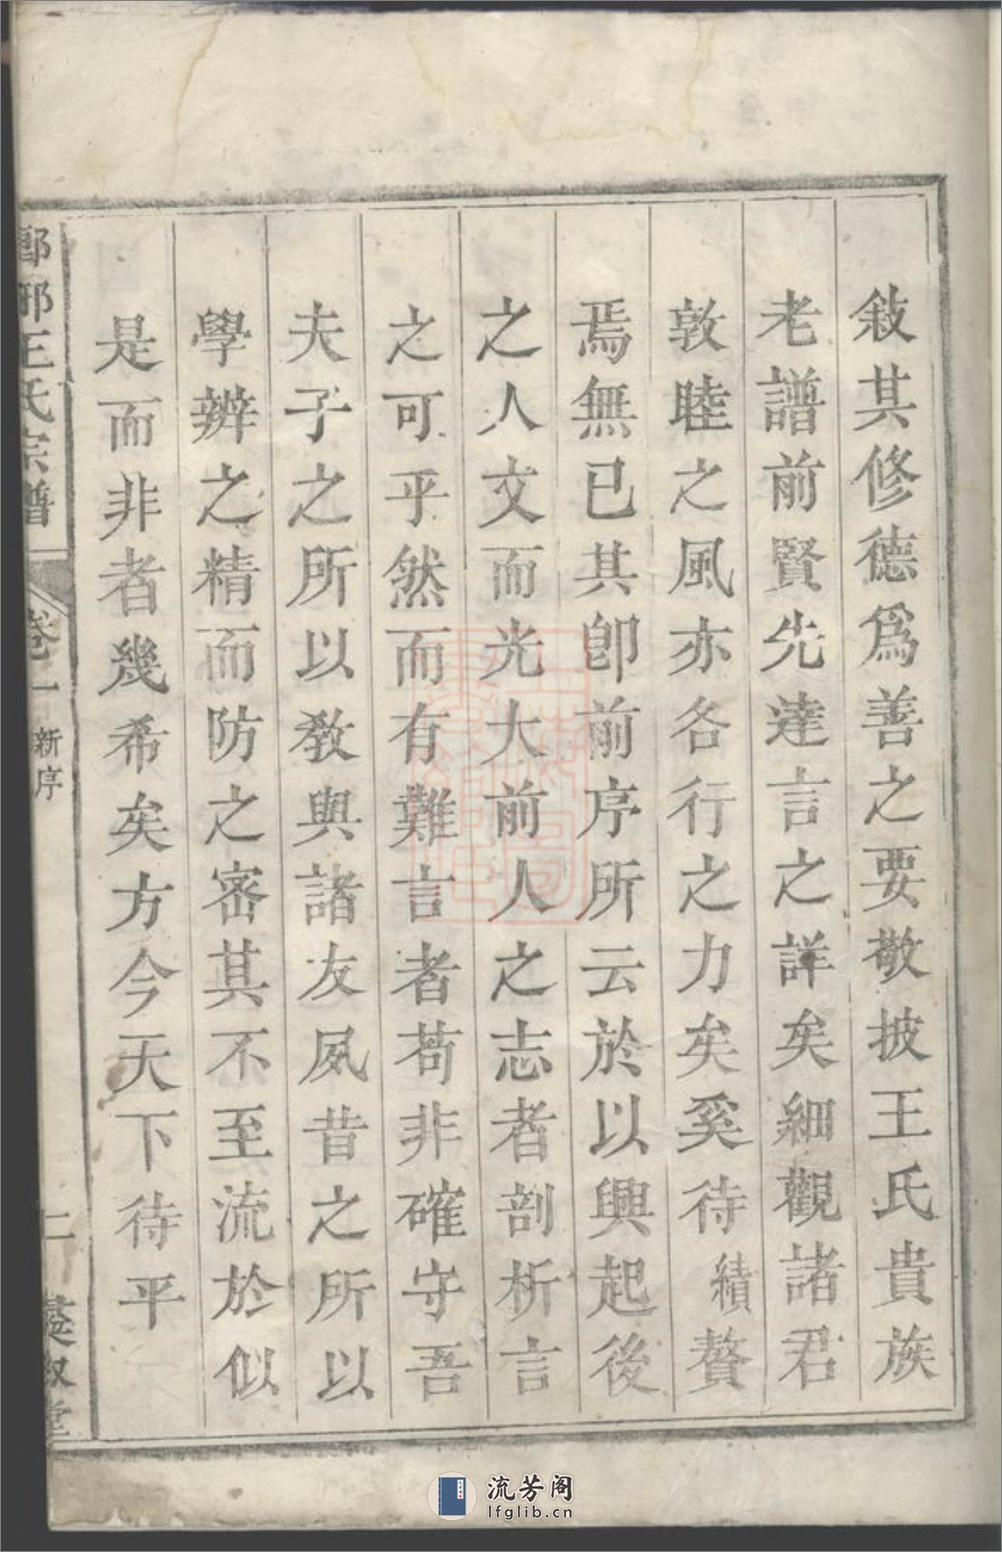 敍其修德爲善之要敬披王氏貴族
老譜前賢先達言之詳矣細觀諸君
敦睦之風亦各行之力矣奚待績贅
焉無已其卽前序所云於以興起後
之人文而光大前人之志者剖析言
之可乎然而有難言者苟非確守吾
夫子之所以敎與諸友夙昔之所以
學辨之精而防之密其不至流於似
是而非者幾希矣方今天下待平
瑯琊王氏宗譜 卷一 新序 二
流芳阁
lfglib.cn